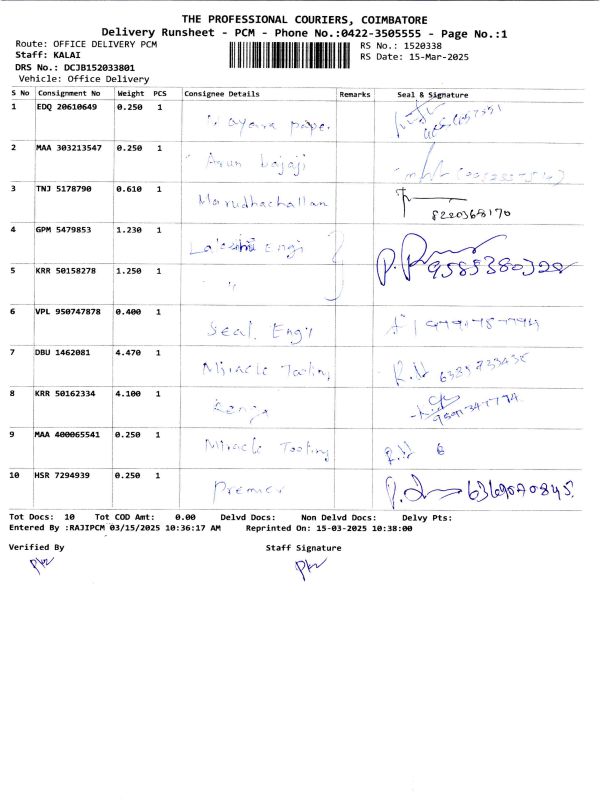 THE PROFESSIONAL COURIERS, COIMBATORE
Delivery Runsheet - PCM - Phone No.:0422-3505555 - Page No.:1
Route: OFFICE DELIVERY PCM RS No.: 1520338
Staff: KALAI RS Date: 15-Mar-2025
DRS No.: DCJB152033801
Vehicle: Office Delivery
S No Consignment No Weight PCS Consignee Details Remarks Seal & Signature
1 EDQ 20610649 0.250 1
2 MAA 303213547 0.250 1 Arun bajaji
3 TNJ 5178790 0.610 1 Marudhachallam
8220368170
4 GPM 5479853 1.230 1 Engi
9585380328
5 KRR 50158278 1.250 1 " "
6 VPL 950747878 0.400 1 Seal Engg
7 DBU 1462081 4.470 1 Miracle Tooling R.H
8 KRR 50162334 4.100 1
9 MAA 400065541 0.250 1 Miracle Tooling R.H 6
10 HSR 7294939 0.250 1 Premier 6369070845
Tot Docs: 10 Tot COD Amt: 0.00 Delvd Docs: Non Delvd Docs: Delvy Pts:
Entered By :RAJIPCM 03/15/2025 10:36:17 AM Reprinted On: 15-03-2025 10:38:00
Verified By Staff Signature